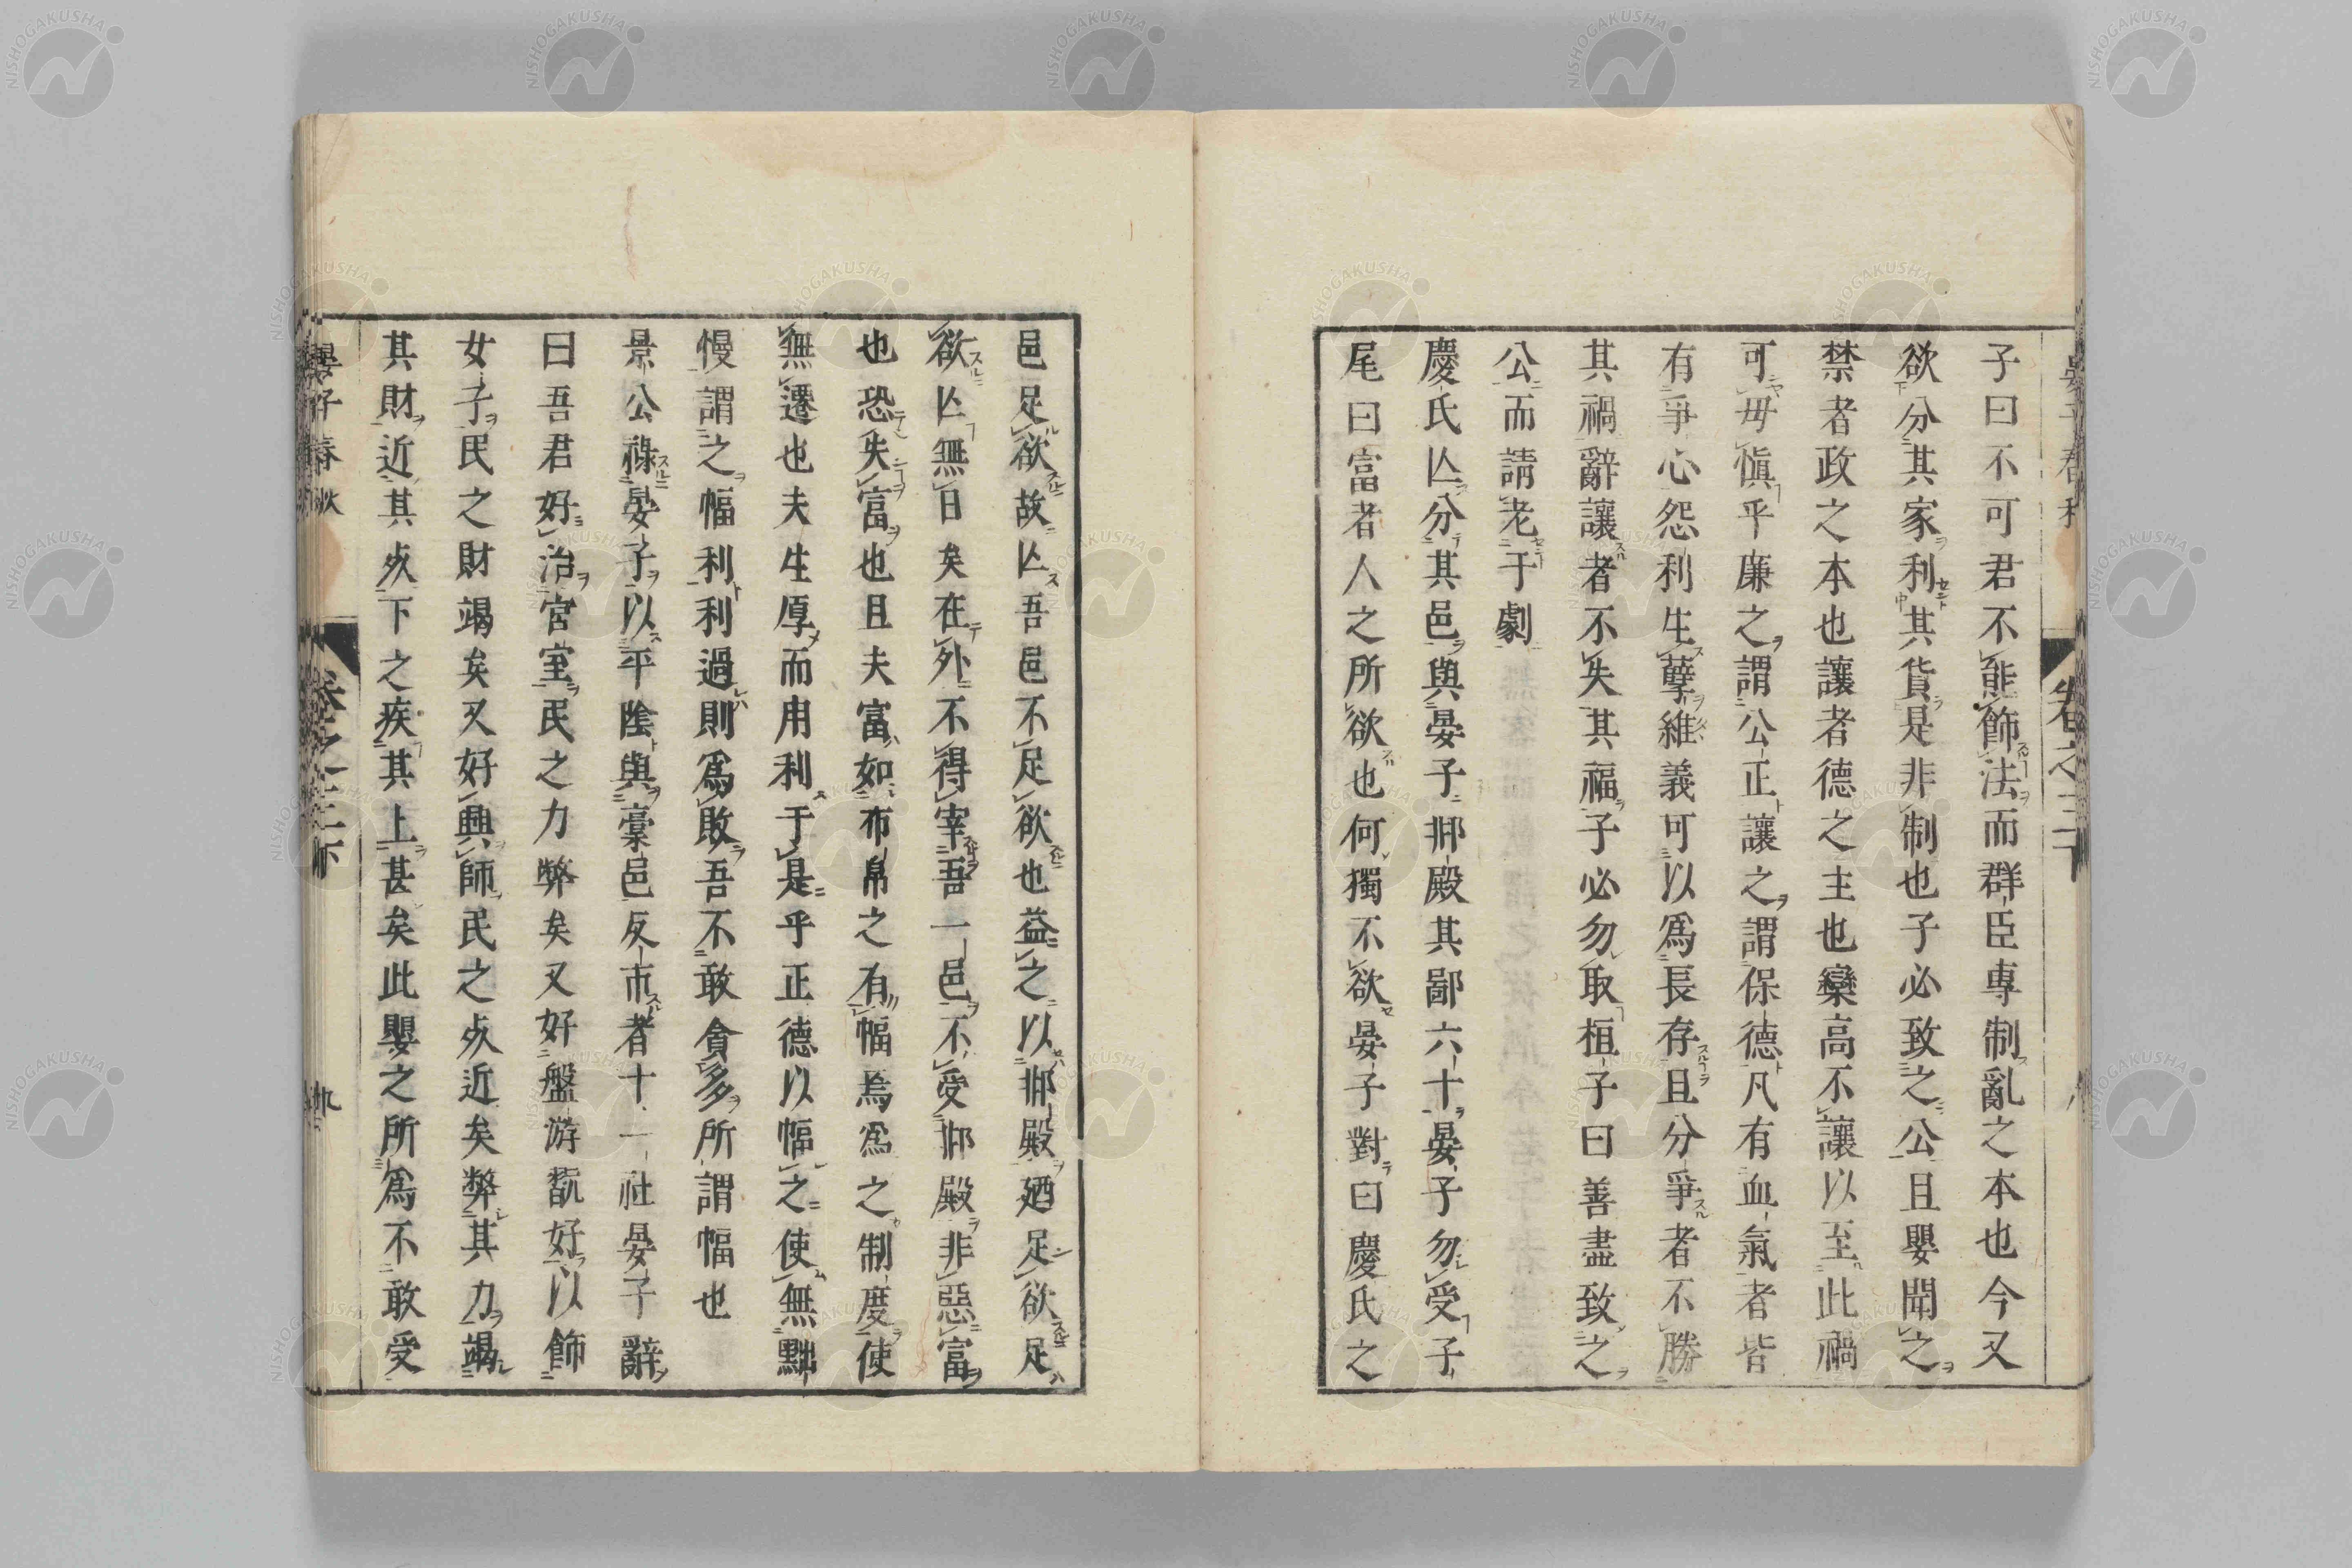 子曰不可君不能飾法而群臣專制亂之本也今又
欲分其家利其貨是非制也子必致之公且嬰聞之
禁者政之本也讓者德之主也欒高不讓以至此禍
可毋愼乎廉之謂公正讓之謂保德凡有血氣者皆
有爭心怨利生孽維義可以爲長存且分爭者不勝
其禍辭讓者不失其福子必勿取桓子曰善盡致之
公而請老于劇
慶氏亾分其邑與晏子邶殿其鄙六十晏子勿受子
尾曰富者人之所欲也何獨不欲晏子對曰慶氏之
邑足欲故亾吾邑不足欲也益之以邶殿廼足欲足
欲亾無日矣在外不得宰吾一邑不受邶殿非惡富
也恐失富也且夫富如布帛之有幅焉爲之制度使
無遷也夫生厚而用利于是乎正德以幅之使無黜
慢謂之幅利利過則爲敗吾不敢貪多所謂幅也
景公祿晏子以平陰與槀邑反市者十一社晏子辭
曰吾君好治宮室民之力弊矣又好盤游翫好以飾
女子民之財竭矣又好興師民之㱠近矣弊其力竭
其財近其㱠下之疾其上甚矣此嬰之所爲不敢受
晏子春秋
卷之三下
九
NISHOGAKUSHA